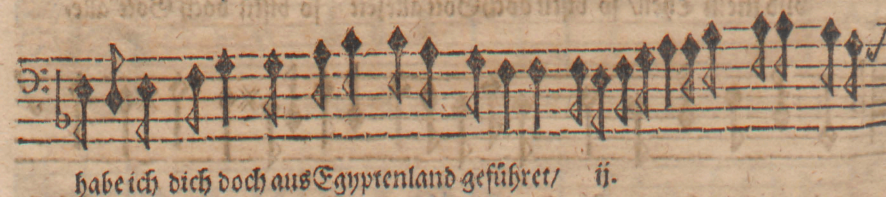 habe ich dich doch aus Egyptenland geführet/ ij.